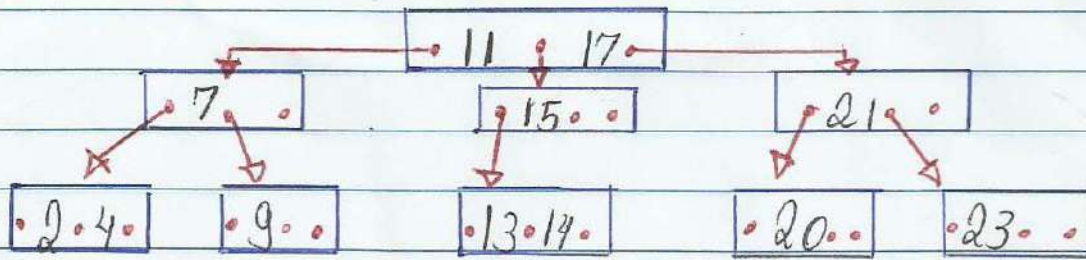 11 17
7 15 21
2 4 9 13 14 20 23